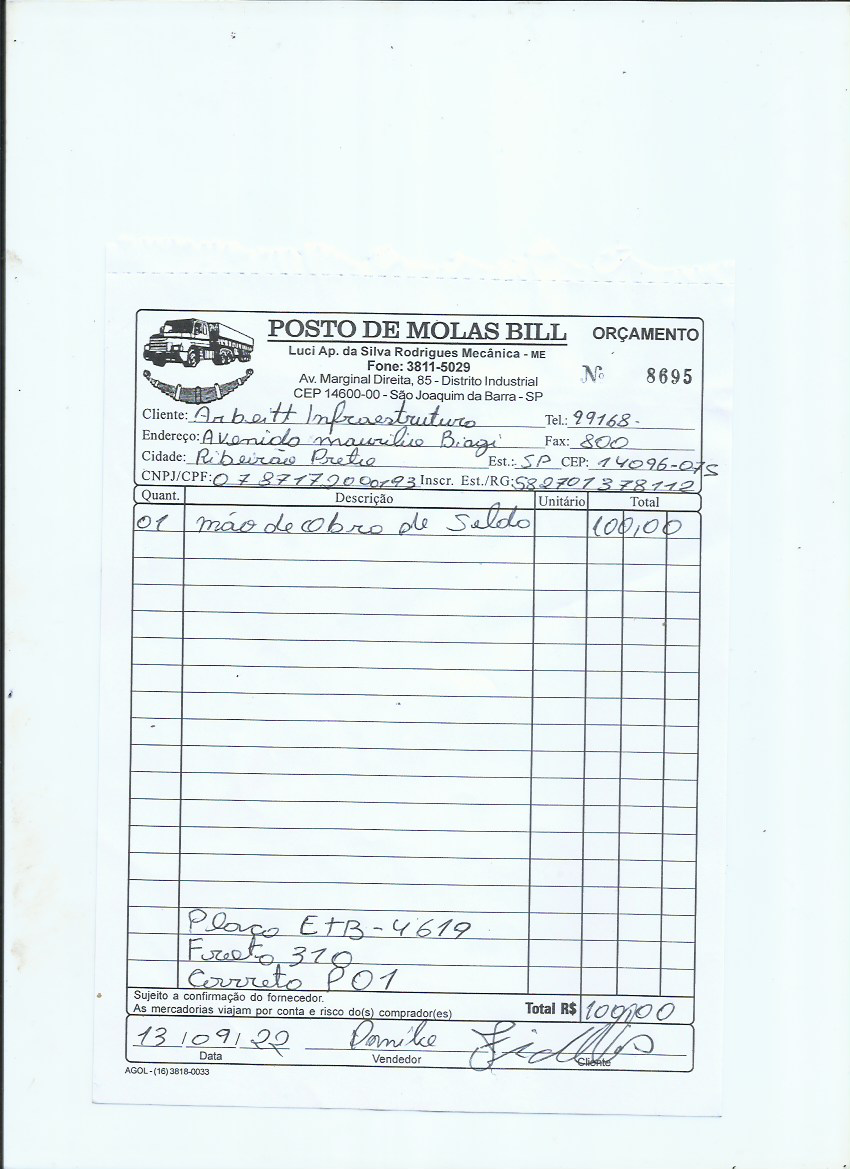 POSTO DE MOLAS BILL ORÇAMENTO
Luci Ap. da Silva Rodrigues Mecânica - ME
Fone: 3811-5029
Nº 8695
Av. Marginal Direita, 85 - Distrito Industrial
CEP 14600-00 - São Joaquim da Barra - SP
Cliente: Arbeitt Infraestrutura Tel.: 99168-
Endereço: Avenida maurilio Biagi Fax: 800
Cidade: Ribeirão Preto Est.: SP CEP: 14096-075
CNPJ/CPF: 07871720000193 Inscr. Est./RG: 582701378112
Quant. Descrição Unitário Total
01 mão de obra de Solda 100,00
Placa ETB-4619
Frota 310
Carreta P01
Sujeito a confirmação do fornecedor.
As mercadorias viajam por conta e risco do(s) comprador(es) Total R$ 100,00
13/09/22
Data Vendedor Cliente
AGOL - (16) 3818-0033